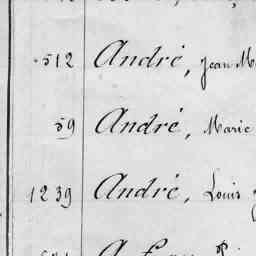 512 André, Jean M
59 André, Marie
1239 André, Louis